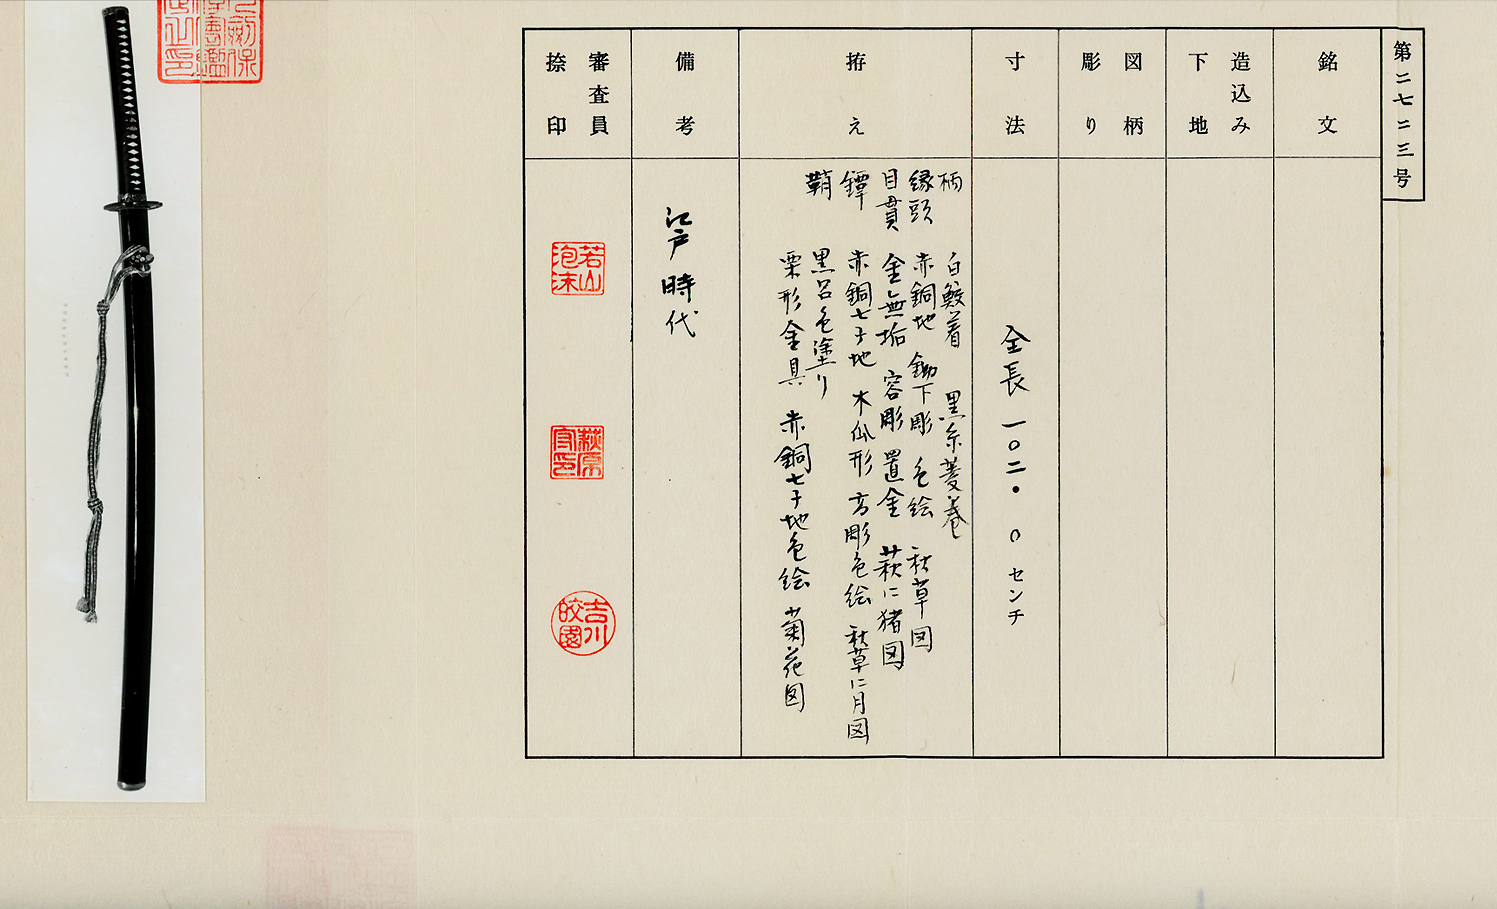 第二七二三号
銘文
造込み
下地
図柄
彫り
寸法
全長 一〇二.〇センチ
拵え
柄 白鮫着 黒糸菱巻
縁頭 赤銅地 鋤下彫 色絵 秋草図
目貫 金無垢 容彫 置金 萩に猪図
鐔 赤銅七子地 木瓜形 高彫色絵 秋草に月図
鞘 黒呂色塗り
栗形金具 赤銅七子地色絵 菊花図
備考
江戸時代
審査員
捺印
若山泡沫
萩原守印
吉川皎園